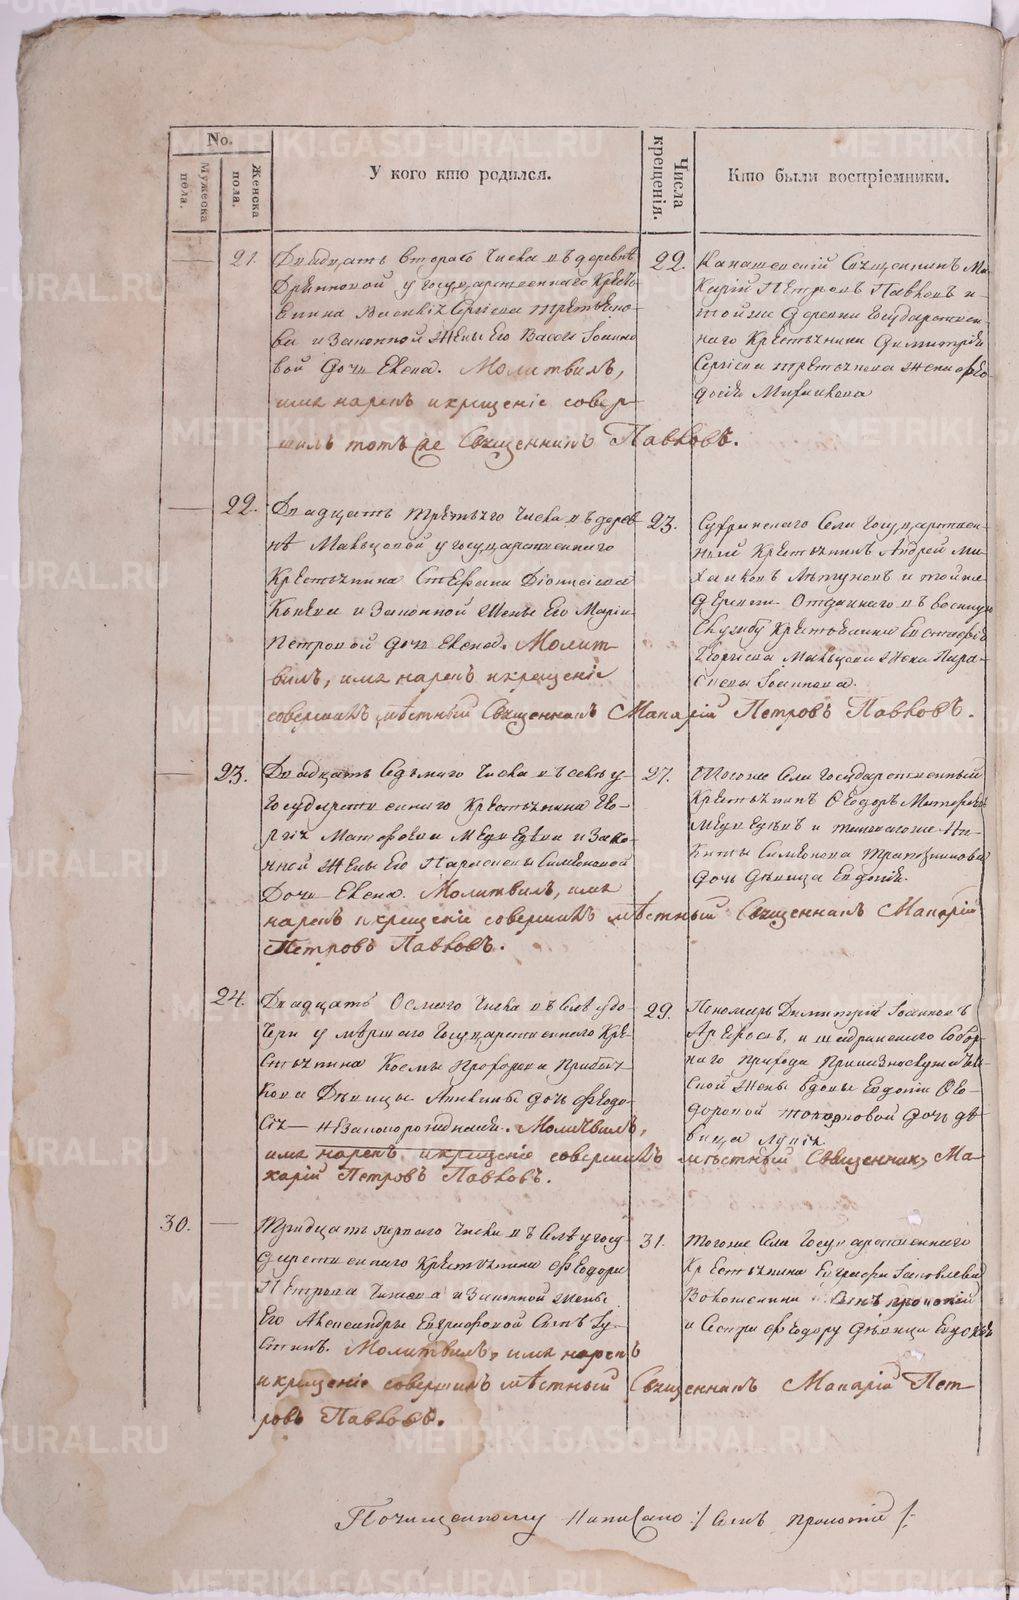 No.
Мужеска пола.
Женска пола.
У кого кто родился.
Числа крещенія.
Кто были воспріемники.
21.
Двадцать втораго числа въ деревнѣ
у Государственнаго Кресть
янина Сергіева Третьяко
ва и Законной жены Его Вассы Іоанно
вой дочь Елена. Молитвилъ,
имя нарекъ и крещеніе совер
шилъ тотъ же Священникъ Павловъ.
22.
Священникъ Ма
карій Петровъ Павловъ и
тойже деревни Государствен
наго Крестьянина Димитрія
Сергіева Третьякова жена Ѳео
досія
22.
Двадцать третьяго числа въ дерев
нѣ Мальцовой у Государственнаго
Крестьянина Стефана Діонисіева
и Законной жены Его Маріи
Петровой дочь Елена. Молит
вилъ, имя нарекъ и крещеніе
совершилъ мѣстный Священникъ Макарій Петровъ Павловъ.
23.
Села Государствен
ный Крестьянинъ Андрей Ми
хайловъ и тойже
деревни Отданнаго въ военную
Службу Крестьянина Евстафія
Георгіева Мальцова жена Пара
скева Іоаннова.
23.
Двадцать Седьмаго числа въ селѣ у
Государственнаго Крестьянина Ге-
оргія Матфеева Медведева и Зако
нной жены Его Параскевы Симеоновой
Дочь Елена. Молитвилъ, имя
нарекъ и крещеніе совершилъ мѣстный Священникъ Макарій
Петровъ Павловъ.
27.
Тогоже Села Государственный
Крестьянинъ Ѳеодоръ
Медведевъ и такогоже Ни-
киты Симеонова Трапезникова
дочь дѣвица Евдокія.
24.
Двадцать Осмаго числа въ Селѣ у до
чери умершаго Государственнаго Кре
стьянина Космы Прохорова
кова Дѣвицы дочь Ѳеодо
сія — Незаконорожденная. Молитвилъ,
имя нарекъ и крещеніе совершилъ мѣстный Священникъ Ма-
карій Петровъ Павловъ.
29.
Пономарь Димитрій Іоанновъ
и Шадринскаго Собор
наго прихода
ской жены вдовы Евдокіи Ѳео
доровой Топорковой дочь дѣ
вица
30.
Тридцать перваго числа въ Селѣ у Госу
дарственнаго Крестьянина Ѳеодора
Петрова и Законной жены
Его Александры Евграфовой сынъ Іу-
стинъ. Молитвилъ, имя нарекъ
и крещеніе совершилъ мѣстный Священникъ Макарій Пет-
ровъ Павловъ.
31.
Тогоже Села Государственнаго
Крестьянина Евграфа Іаковлева
сынъ прокопій
и Сестра Ѳеодору дѣвица Евдокія
Почищенному написано :/ сынъ прокопій /:
METRIKI.GASO-URAL.RU